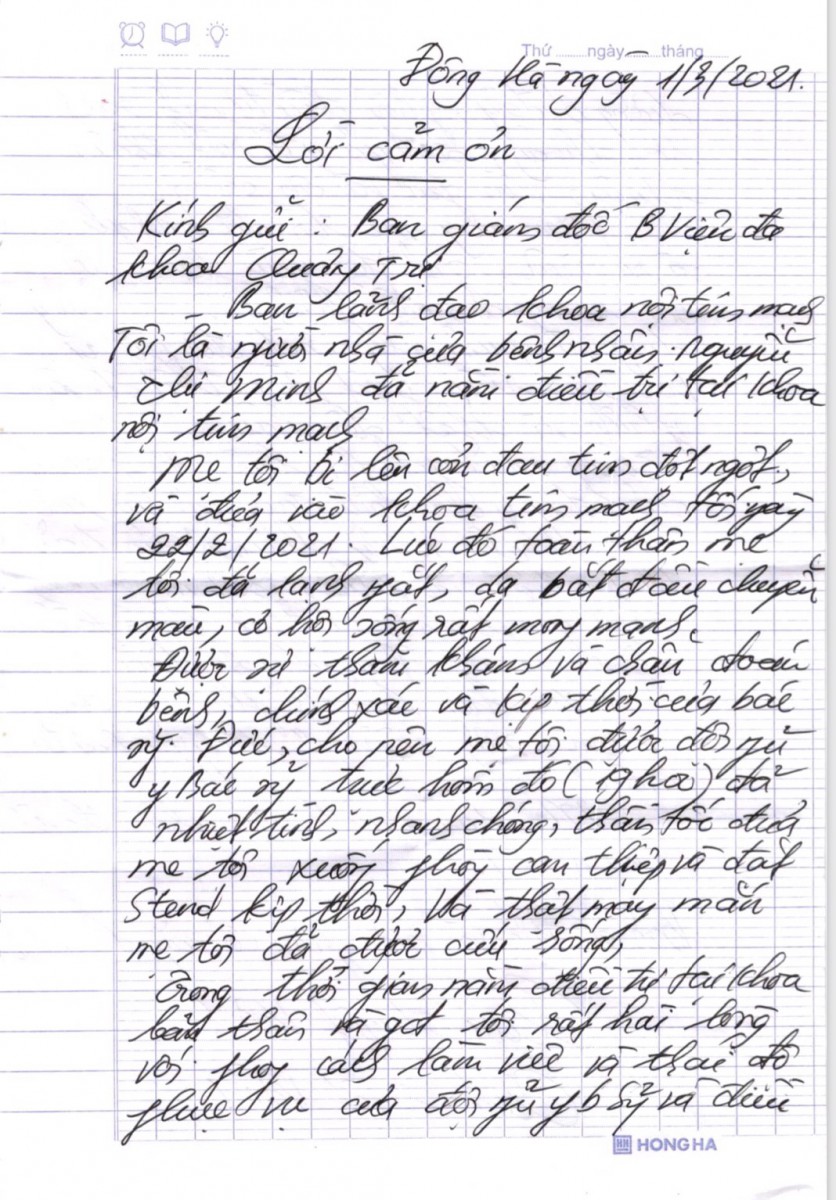 Thứ ......ngày ......tháng......
Đông Hà ngày 1/3/2021.
Lời cảm ơn
Kính gửi : Ban giám đốc B Viện đa
khoa Quảng Trị
- Ban lãnh đạo khoa nội tim mạch
Tôi là người nhà của bệnh nhân. Nguyễn
Thị Minh đã nằm điều trị tại khoa
nội tim mạch
Mẹ tôi bị lên cơn đau tim đột ngột,
và đưa vào khoa tim mạch tối ngày
22/2/2021. Lúc đó toàn thân mẹ
tôi đã lạnh ngắt, da bắt đầu chuyển
màu, cơ hội sống rất mong manh.
Được sự thăm khám và chẩn đoán
bệnh, chính xác và kịp thời của bác
sỹ. Đức, cho nên mẹ tôi được đội ngũ
y Bác sỹ trực hôm đó ( ) đã
nhiệt tình, nhanh chóng, thần tốc đưa
mẹ tôi xuống phòng can thiệp và đặt
Stend kịp thời, Và thật may mắn
mẹ tôi đã được cứu sống,
Trong thời gian nằm điều trị tại khoa
bản thân và gđ tôi rất hài lòng
với phong cách làm việc và thái độ
phục vụ của đội ngũ y b sỹ và điều
HONG HA